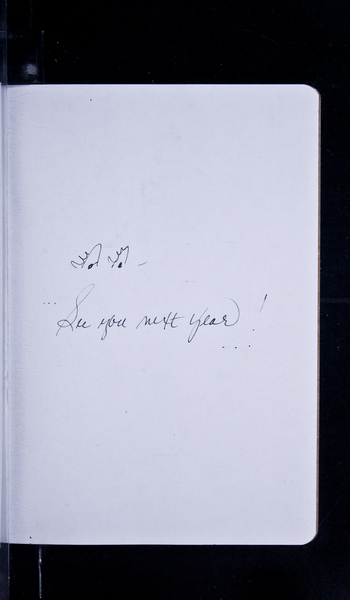 ... See you next year! ...